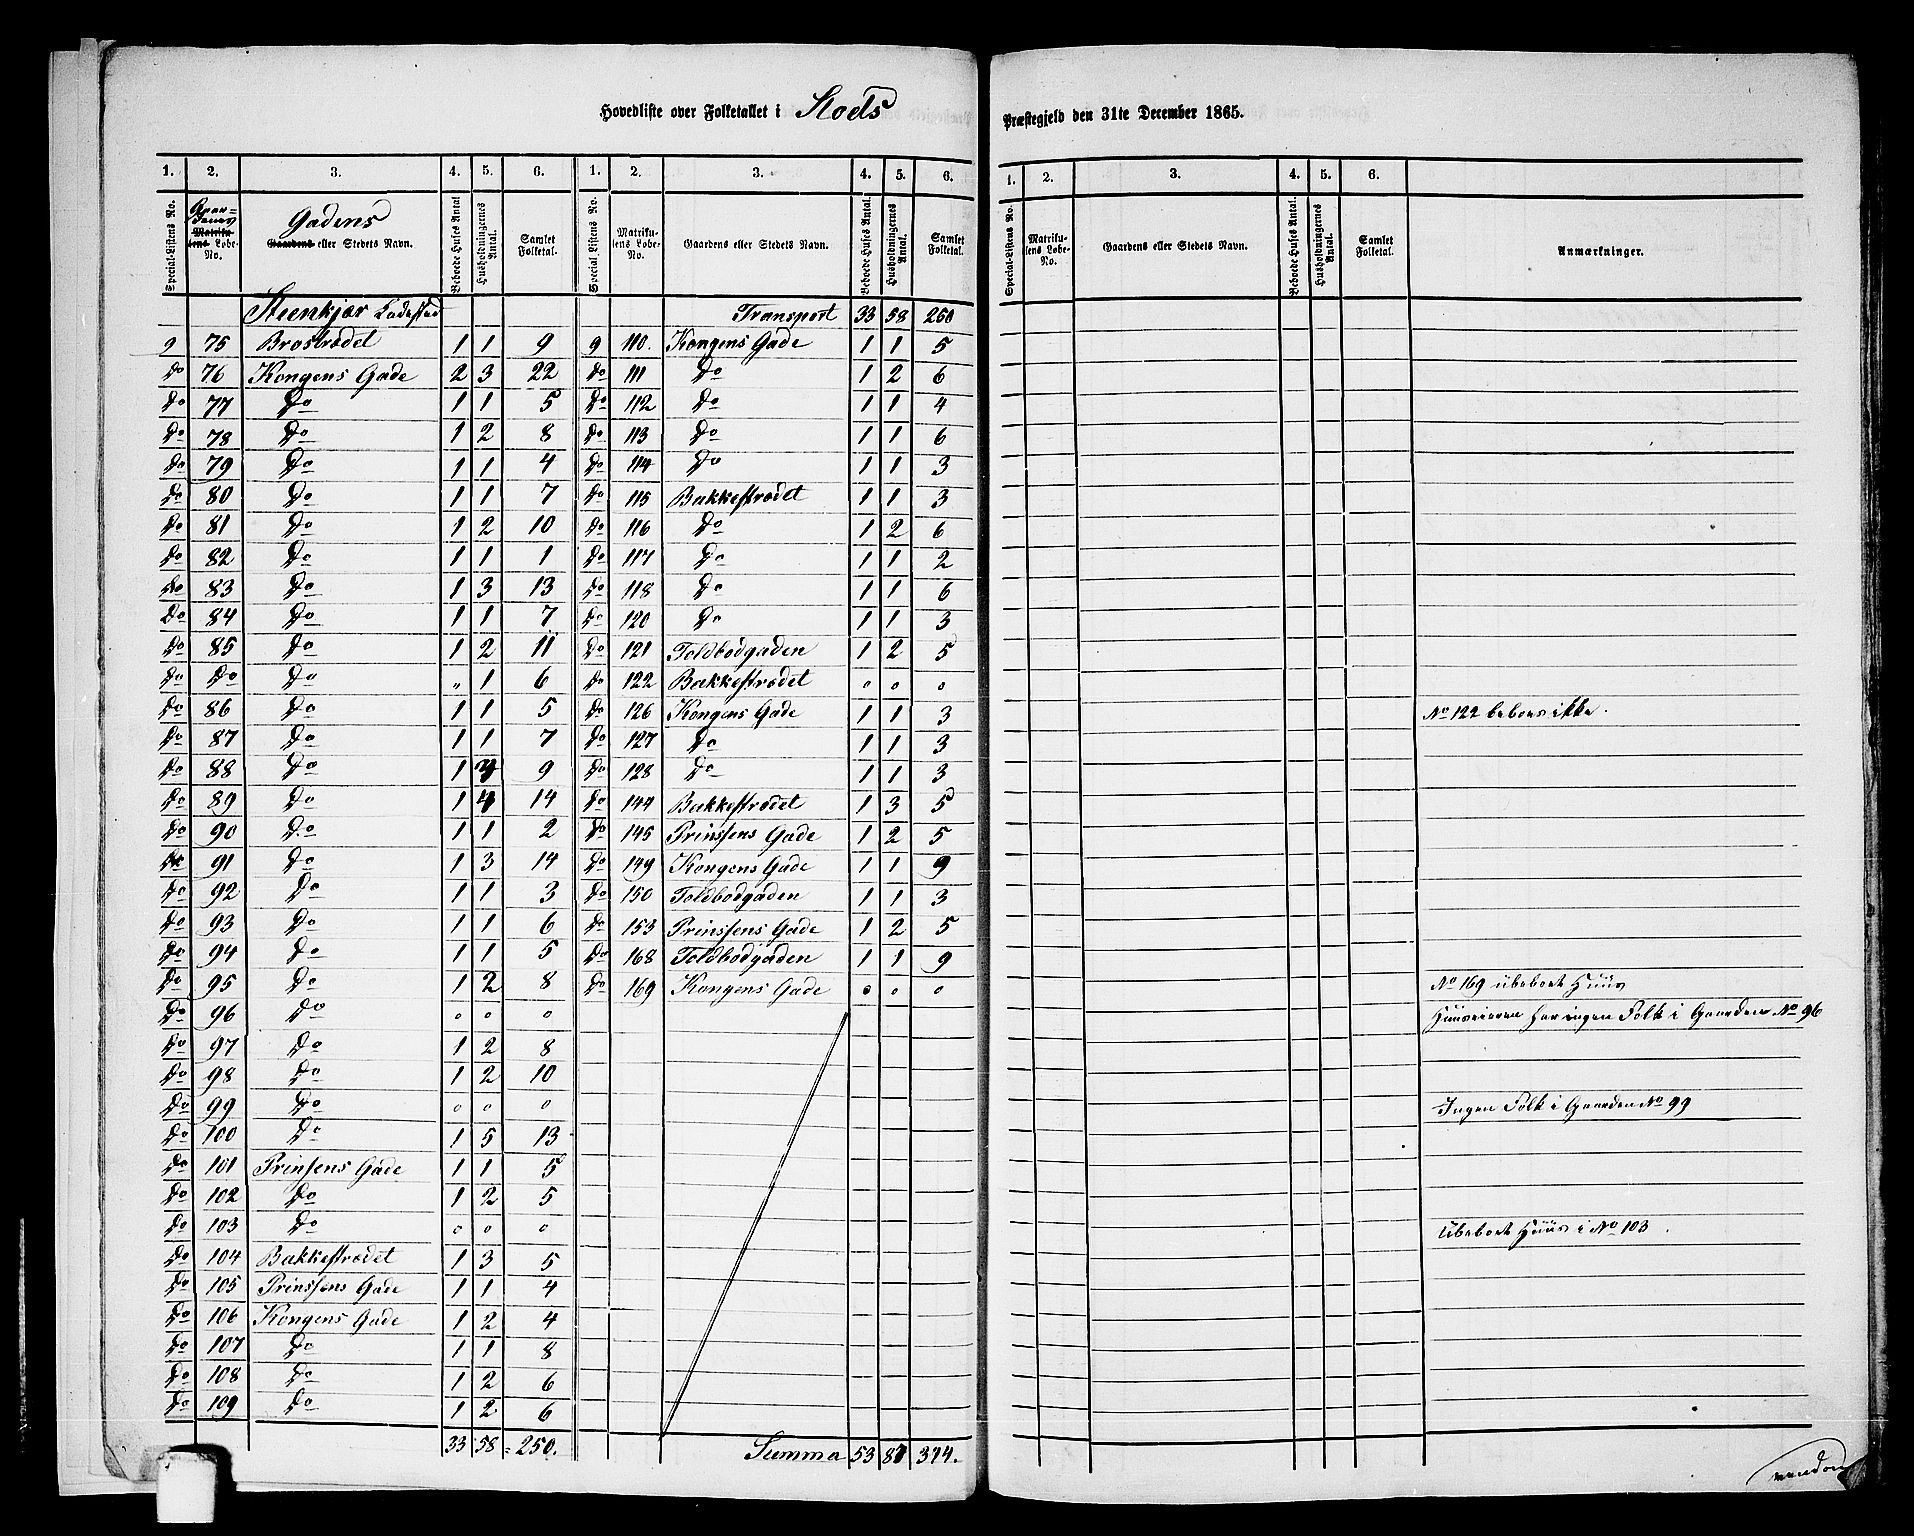 Hovedliste over Folketallet i Stods Præstegjeld den 31te December 1865.
1. 2. 3. 4. 5. 6. 1. 2. 3. 4. 5. 6.
Special-Listens No. Matrikulens Løbe-No. Gadens Gaardens eller Stedets Navn. Beboede Huses Antal Husholdningernes Antal. Samlet Folketal. Special Listens No. Matrikulens Løbe-No. Gaardens eller Stedets Navn. Beboede Huses Antal. Husholdningernes Antal. Samlet Folketal.
Steenkjær Ladested Transport 33 58 250
9 75 Brostrædet 1 1 9 9 110. Kongens Gade 1 1 5
Do 76 Kongens Gade 2 3 22 Do 111 Do 1 2 6
Do 77 Do 1 1 5 Do 112 Do 1 1 4
Do 78 Do 1 2 8 Do 113 Do 1 1 6
Do 79 Do 1 1 4 Do 114 Do 1 1 3
Do 80 Do 1 1 7 Do 115 Bakkestrædet 1 1 3
Do 81 Do 1 2 10 Do 116 Do 1 2 6
Do 82 Do 1 1 1 Do 117 Do 1 1 2
Do 83 Do 1 3 13 Do 118 Do 1 1 6
Do 84 Do 1 1 7 Do 120 Do 1 1 3
Do 85 Do 1 2 11 Do 121 Toldbodgaden 1 2 5
Do Do Do " 1 6 Do 122 Bakkestrædet o o o
Do 86 Do 1 1 5 Do 126 Kongens Gade 1 1 3
Do 87 Do 1 1 7 Do 127 Do 1 1 3
Do 88 Do 1 9 Do 128 Do 1 1 3
Do 89 Do 1 4 14 Do 144 Bakkestrædet 1 3 5
Do 90 Do 1 1 2 Do 145 Prinsens Gade 1 2 5
Do 91 Do 1 3 14 Do 149 Kongens Gade 1 1 9
Do 92 Do 1 1 3 Do 150 Toldbodgaden 1 1 3
Do 93 Do 1 1 6 Do 153 Prinsens Gade 1 2 5
Do 94 Do 1 1 5 Do 168 Toldbodgaden 1 1 9
Do 95 Do 1 2 8 Do 169 Kongens Gade o o o
Do 96 Do o o o
Do 97 Do 1 2 8
Do 98 Do 1 2 10
Do 99 Do o o o
Do 100 Do 1 5 13
Do 101 Prinsens Gade 1 1 5
Do 102 Do 1 2 5
Do 103 Do o o o
Do 104 Bakkestrædet 1 3 5
Do 105 Prinsens Gade 1 1 4
Do 106 Kongens Gade 1 2 4
Do 107 Do 1 1 8
Do 108 Do 1 2 6
Do 109 Do 1 2 6
33 58 = 250. Summa 53 87 344.
1. 2. 3. 4. 5. 6.
Special-Listens No. Matrikulens Løbe-No. Gaardens eller Stedets Navn. Beboede Huses Antal. Husholdningernes Antal. Samlet Folketal. Anmærkninger.
No 122 beboes ikke.
No 169 ubeboet Huus
Huuseieren har ingen Folk i Gaarden No 96
Ingen Folk i Gaarden No 99
Ubeboet Huus i No 103.